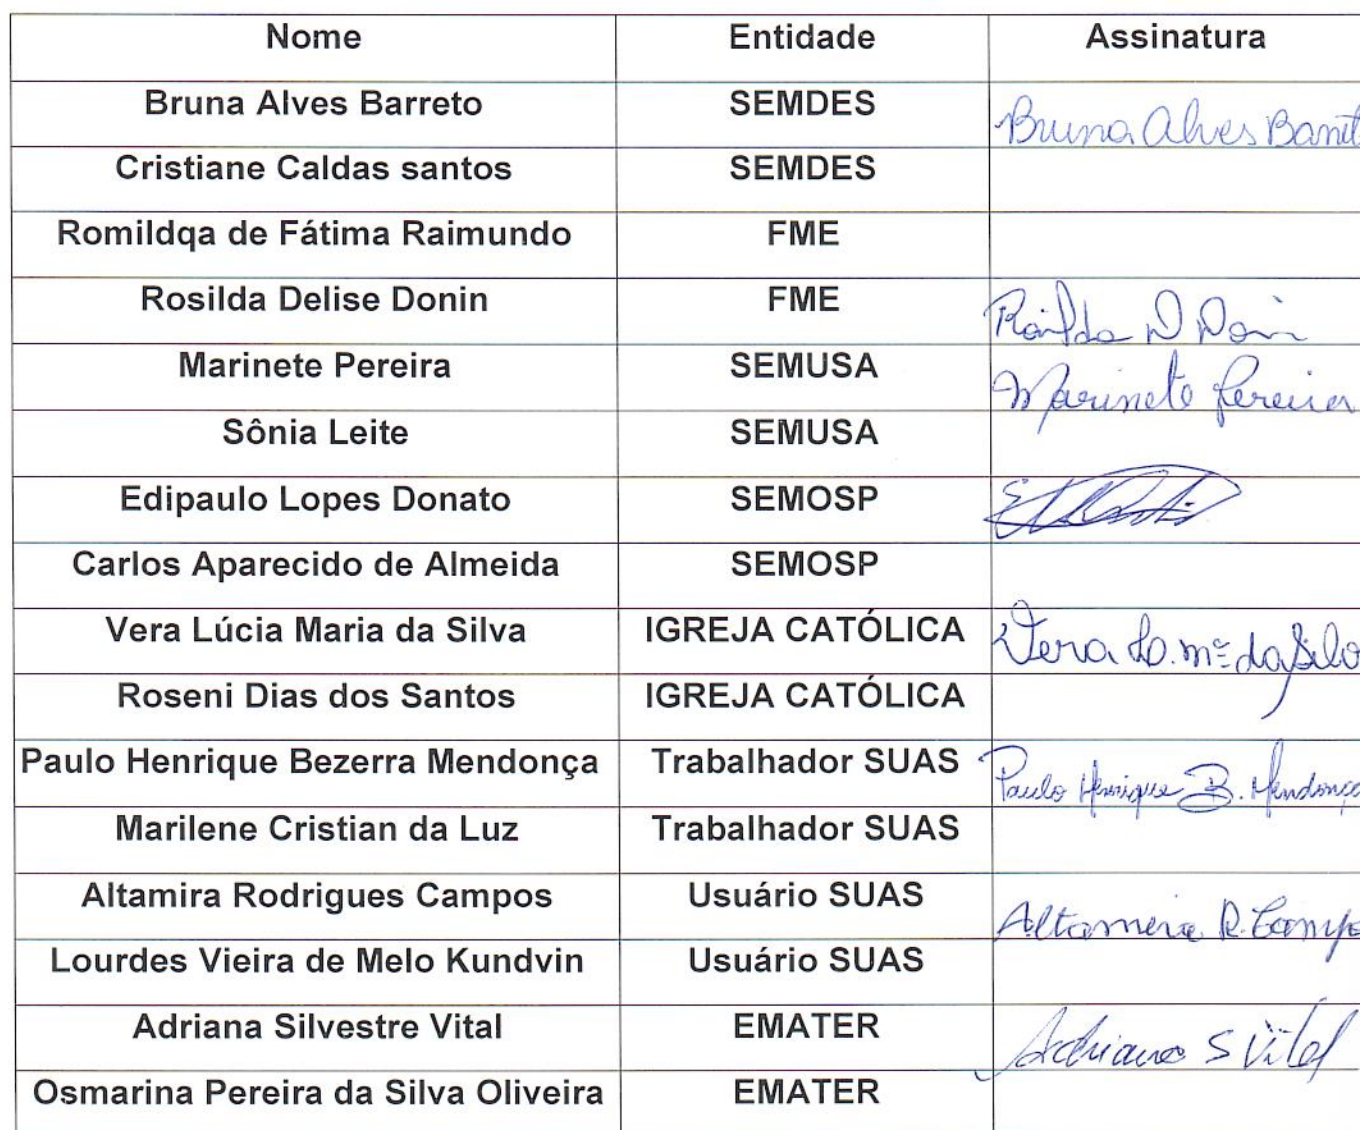 Nome Entidade Assinatura
Bruna Alves Barreto SEMDES Bruna Alves Barret
Cristiane Caldas santos SEMDES
Romildqa de Fátima Raimundo FME
Rosilda Delise Donin FME Rosilda D Donin
Marinete Pereira SEMUSA Marinete Pereira
Sônia Leite SEMUSA
Edipaulo Lopes Donato SEMOSP
Carlos Aparecido de Almeida SEMOSP
Vera Lúcia Maria da Silva IGREJA CATÓLICA Vera Lo. Mª da Silva
Roseni Dias dos Santos IGREJA CATÓLICA
Paulo Henrique Bezerra Mendonça Trabalhador SUAS Paulo Henrique B. Mendonça
Marilene Cristian da Luz Trabalhador SUAS
Altamira Rodrigues Campos Usuário SUAS Altamira R. Campo
Lourdes Vieira de Melo Kundvin Usuário SUAS
Adriana Silvestre Vital EMATER Adriana S Vital
Osmarina Pereira da Silva Oliveira EMATER